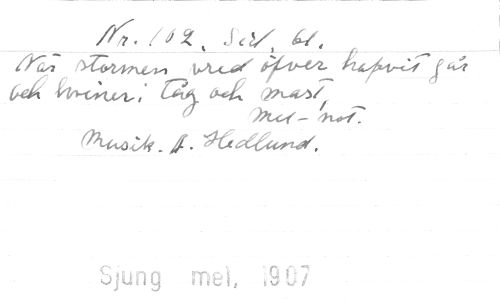 Nr. 102, Sid. 61.
När stormen vred öfver hafvit går
och hviner i tåg och mast,
mel-not.
Musik. A. Hedlund.
Sjung mel, 1907